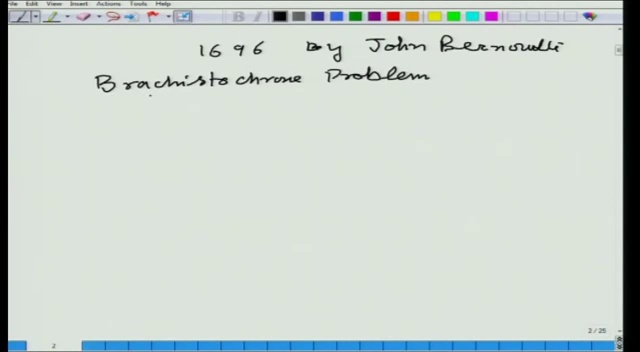 File Edit View Insert Actions Tools Help
1696 by John Bernoulli
Brachistochrone Problem
2 / 25
2